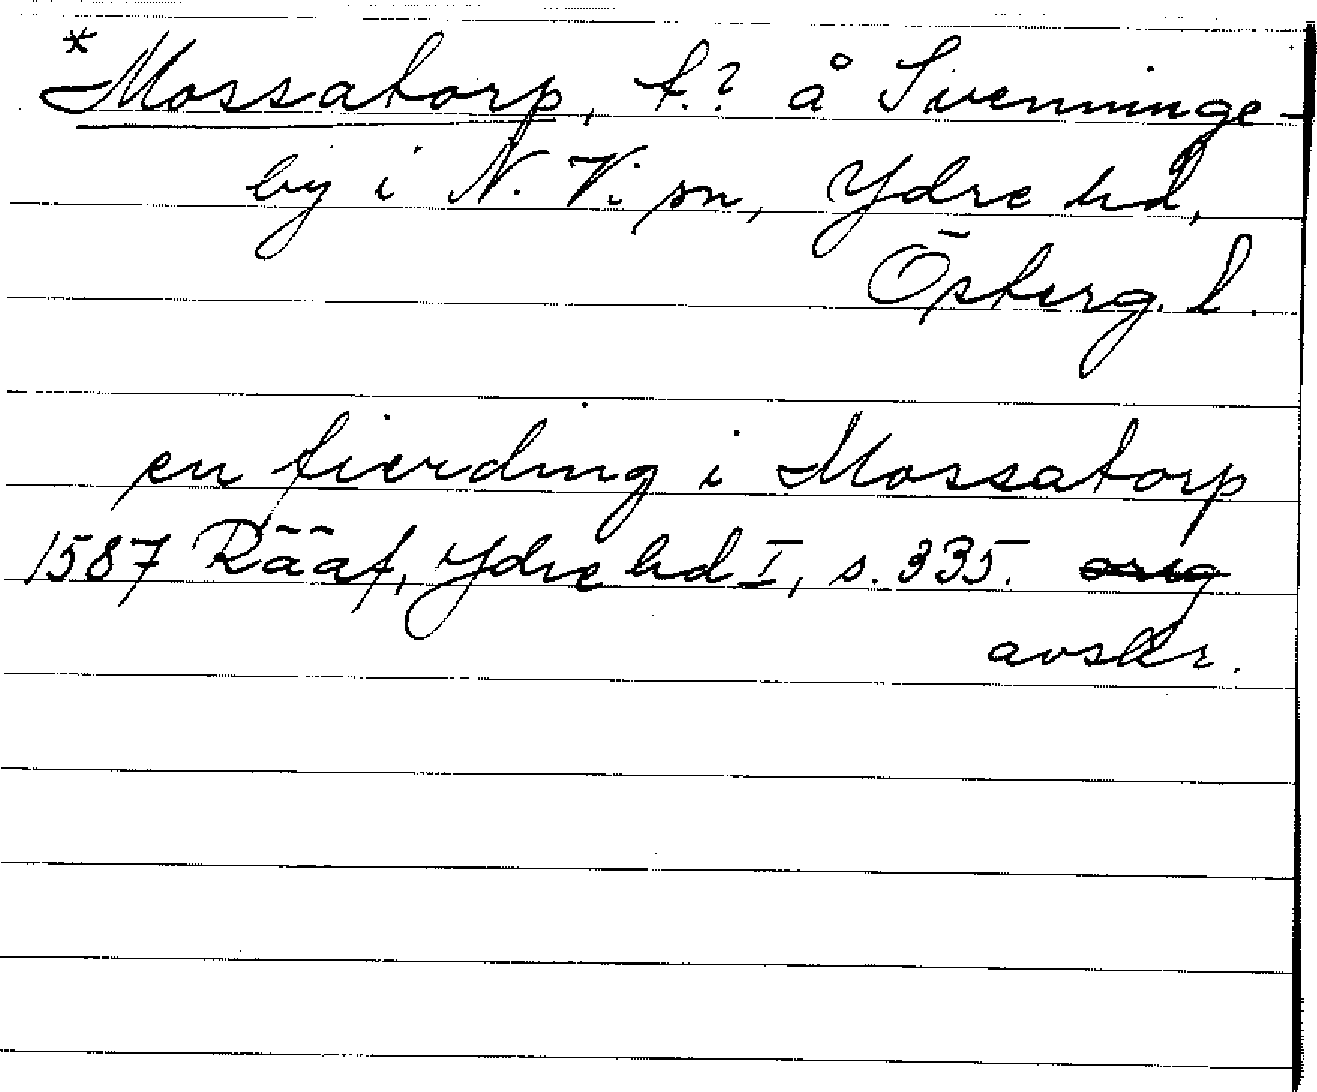 *
Mossatorp, t.? å Svenninge-
by i N. Vi sn, Ydre hd,
Östergl.
en fierding i Mossatorp
1587 Rääf, Ydre hd I, s. 335. orig
avskr.